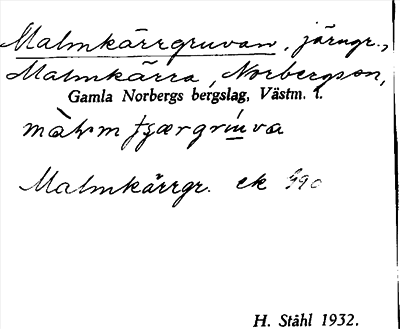 Malmkärrgruvan, järngr.,
Malmkärra, Norbergson,
Gamla Norbergs bergslag, Västm. l.
Malmkärrgr. ek 590
H. Ståhl 1932.